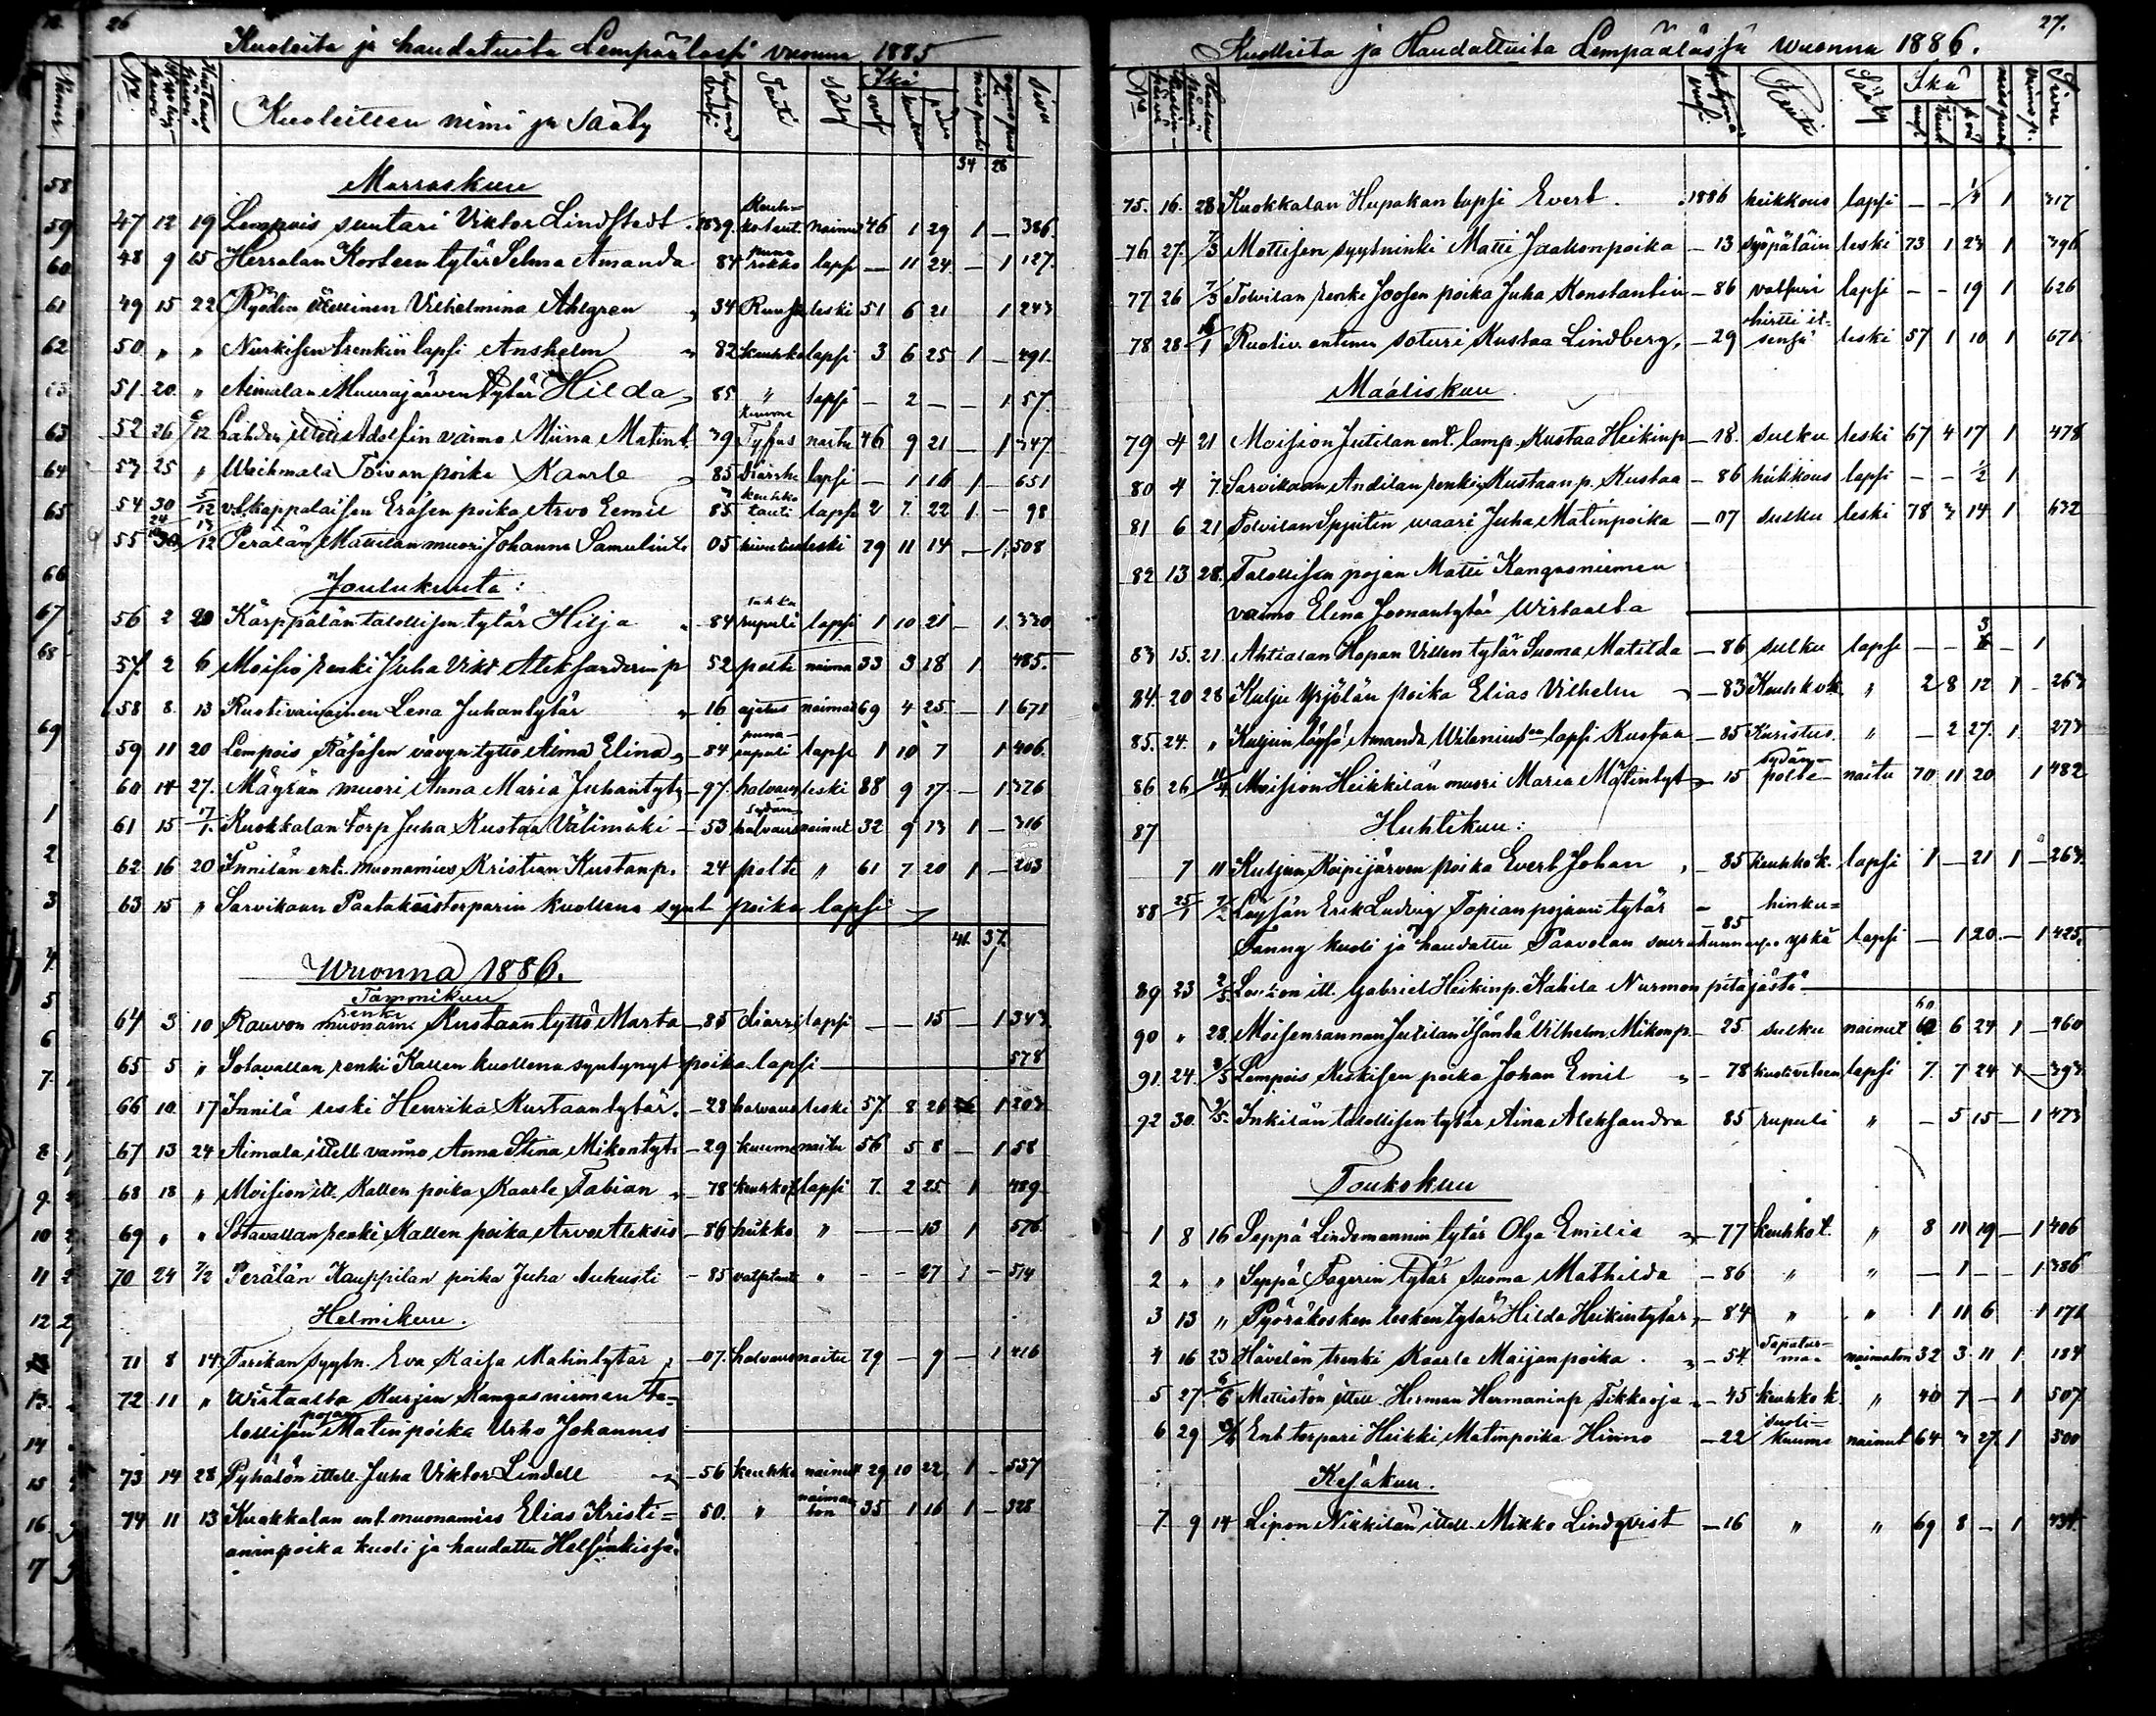 26
Kuoleita ja haudatuita Lempäälässä vuonna 1885
No Kuoleitten nimi ja sääty Tauti Sääty Ikä Sivu
34 28
Marraskuu
47 12 19 Lempois suutari Viktor Lindstedt 1839 Keuhkotaut. naimu 46 1 29 1 — 386.
48 9 15 Herralan Korteen tytär Selma Amanda 84 punarokko lapsi — 11 24 — 1 127.
49 15 22 Ryödin itellinen Vilhelmina Ahlgren " 34 leski 51 6 21 1 243
50 " " Nurkisen trenkin lapsi Anshelm " 82 keuhko lapsi 3 6 25 1 — 491.
51 20 " Aimalan Muurajärven tytär Hilda " 85 " lapsi — 2 — — 1 57.
52 26 6/12 Lahden itellis Adolfin vaimo Miina Matint. 39 kuume Tyfus naitu 46 9 21 — 1 347
53 25 " Weihmala Toivan poika Kaarle " 85 lapsi — 1 16 1 — 651
54 30 5/12 v.l. kappalaisen Eräsen poika Arvo Eemil " 85 keuhko tauti lapsi 2 7 22 1 — 98
55 24 13/12 Perälän Mattilan muori Johanna Samulint. 05 leski 79 11 14 — 1 508
Joulukuuta:
56 2 20 Kärppälän talollisen tytär Hilja " 84 tuhka rupuli lapsi 1 10 21 — 1 330
57. 2 6 Moisio renki Juha Vikt Aleksanderin p 52 polte naimu 33 3 18 1 485.
58 8 13 Ruotivaivainen Lena Juhantytär " 16 ajetus naimat 69 4 25 — 1 671
59 11 20 Lempois Räsäsen vävyn tyttö Aima Elina " 84 punarupuli lapsi 1 10 7 1 406.
60 14 27. Mäyrän muori Anna Maria Juhantyt. — 97. halvaus leski 88 9 17 — 1 376
61 15 17/1. Kuokkalan torp Juha Kustaa Välimäki — 53 sydänhalvaus naimut 32 9 13 1 — 316
62 16 20 Innilän ent. muonamies Kristian Kustanp. 24 polte " 61 7 20 1 — 203
63 15 " Sarvikaan Paatakoistorparin kuollena synt poika lapsi
41. 37.
Wuonna 1886.
Tammikuu
64 3 10 Rauvon renki muonam Kustaan tyttö Marta — 85 diarri lapsi — — 15 — 1 343
65 5 " Sotavallan renki Kallen kuollena syntynyt poika lapsi 578
66 10 17 Innilä leski Henrika Kustaantytär. — 28 halvaus leski 57. 8 26 1 203
67 13 24 Aimala itell vaimo Anna Stina Mikontyt. — 29 kuume naitu 56 5 8 — 1 58
68 18 " Moision itl. Kallen poika Kaarle Fabian " 78 keuhkot lapsi 7. 2 25 1 489
69 " " Sotavallan renki Kallen poika Arvo Aleksis — 86 heikko " — — 13 1 576
70 24 7/2 Perälän Kauppilan poika Juha Aukusti — 85 vatsataut " — — 27 1 — 514
Helmikuu.
71 8 14 Farikan syytn. Eva Kaisa Matintytär " — 07. halvaus naitu 79 — 9 — 1 416
72 11 " Wirtaalta Kurjen Kangasniemen talollisen pojan Matinpoika Urho Johannes
73 14 28 Pyhälön itell. Juha Viktor Lindell — 56 keuhko naimut 29 10 22 1 — 537
74 11 13 Kuokkalan ent. muonamies Elias Kristi=aninpoika kuoli ja haudattu Helsinkissä. 50. " naimaton 35 1 16 1 — 328
27.
Kuolleita ja Haudattuita Lempäälässä Wuonna 1886.
75. 16. 28 Kuokkalan Hupakan lapsi Evert. 1886 heikkous lapsi — — 1/4 1 317
76 27. 7/3 Mottisen syytninki Matti Jaakonpoika — 13 syöpätäin leski 73 1 23 1 396
77 26 7/3 Tolvilan renki Joosen poika Juha Konstantin — 86 lapsi — — 19 1 626
78 28 Ruotiv. entinen soturi Kustaa Lindberg. — 29 hirtti itsensä leski 57 1 10 1 671
Maaliskuu
79 4 21 Moision Jutilan ent. lamp. Kustaa Heikinp — 18. sulku leski 67 4 17 1 478
80 4 7. Sarvikaan Andilan renki Kustaan p. Kustaa — 86 heikkous lapsi — — 1/2 1
81 6 21 Tolvilan Spjutin vaari Juha Matinpoika — 07 sulku leski 78 3 14 1 632
82 13 28. Talollisen pojan Matti Kangasniemen
vaimo Elina Joonantytär Wirtaalta
83 15. 21. Ahtialan Hopan Villen tytär Suoma Matilda — 86 sulku lapsi — — 3 — 1
84. 20 28 Kulju Yrjölän poika Elias Vilhelm — 83 Keuhkok " 2 8 12 1 — 263
85. 24. " Kuljun löysä Amanda Wileniuksen lapsi Kustaa — 85 Kuristus. " — 2 27. 1. 273
86 26 11/4 Moision Heikkilän muori Maria Matintyt " 15 sydänpolte naitu 70 11 20 1 482
87
Huhtikuu:
7 11 Kuljun Koipijärven poika Evert Johan " 85 keuhkok. lapsi 1 — 21 1 — 263
88 25/1 7/2 Löysän Erik Ludvig Topian pojan tytär — 85 hinku=
Fanny kuoli ja haudattu Paavolan seurakunnassa yskä lapsi — 1 20 — 1 425.
89 23 2/5 itl. Gabriel Heikinp. Kahila Nurmon pitäjästä
90 " 28. Moisenrannan Jutilan isäntä Vilhelm Mikonp — 25 sulku naimut 60 6 24 1 — 460
91 24 3/5 Lempois Keskisen poika Johan Emil " — 78 lapsi 7. 7 24 1 — 393
92 30 9/5. Inkilän talollisen tytär Aina Aleksandra 85 rupuli " — 5 15 — 1 473
Toukokuu
1 8 16 Seppä Lindemannin tytär Olga Emilia " — 77 keuhkot. " 8 11 19 — 1 406
2 " " Seppä Fagerin tytär Suoma Mathilda — 86 " " — 1 — — 1 386
3 13 " Pyöräkosken lesken tytär Hilda Heikintytär — 84 " " 1 11 6 1 171
4 16 23 Hävelän trenki Kaarle Maijanpoika. " — 54 Tapatur=ma naimaton 32 3 11 1 184
5 27 6/6 Mattistön itell. Herman Hermaninp Tikkaoja — 45 keuhkok. " 40 7 — 1 507
6 29 Ent torpari Heikki Matinpoika Hinno — 22 suolikuume naimut 64 3 27. 1 300
Kesäkuu.
7 9 14 Lipon Nikkilän itell. Mikko Lindqvist — 16 " " 69 8 — 1 434